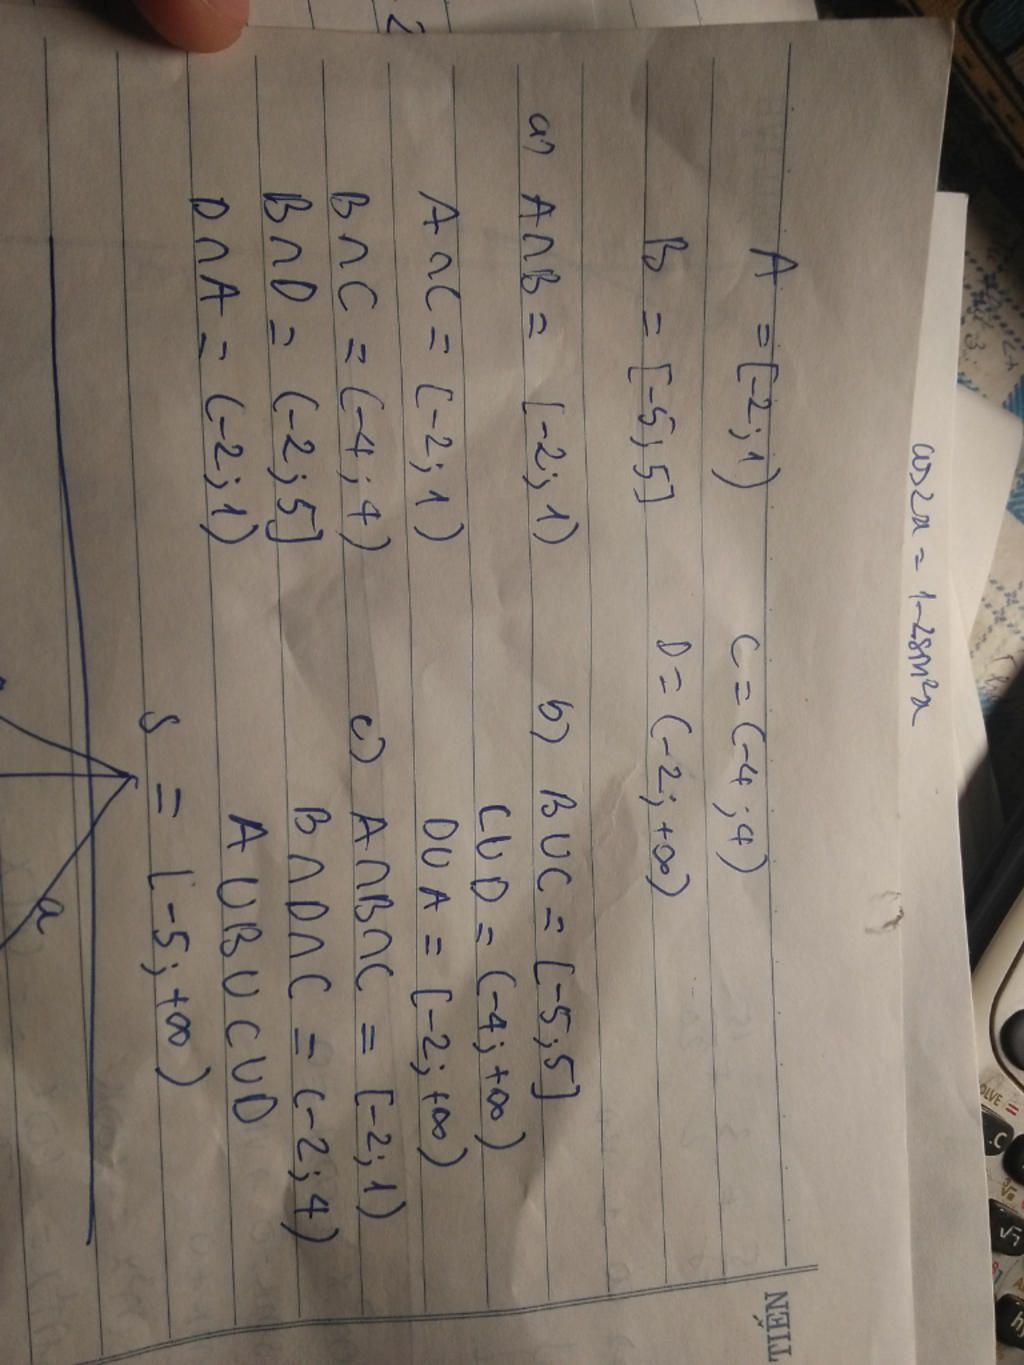 cos2x = 1-2sin²x
A = [-2; 1)
C = (-4; 4)
B = [-5; 5]
D = (-2; +∞)
a) A∩B = [-2; 1)
A∩C = [-2; 1)
B∩C = (-4; 4)
B∩D = (-2; 5]
D∩A = (-2; 1)
b) B∪C = [-5; 5]
C∪D = (-4; +∞)
D∪A = [-2; +∞)
c) A∩B∩C = [-2; 1)
B∩D∩C = (-2; 4)
A∪B∪C∪D
S = [-5; +∞)
a
TIẾN
SOLVE =